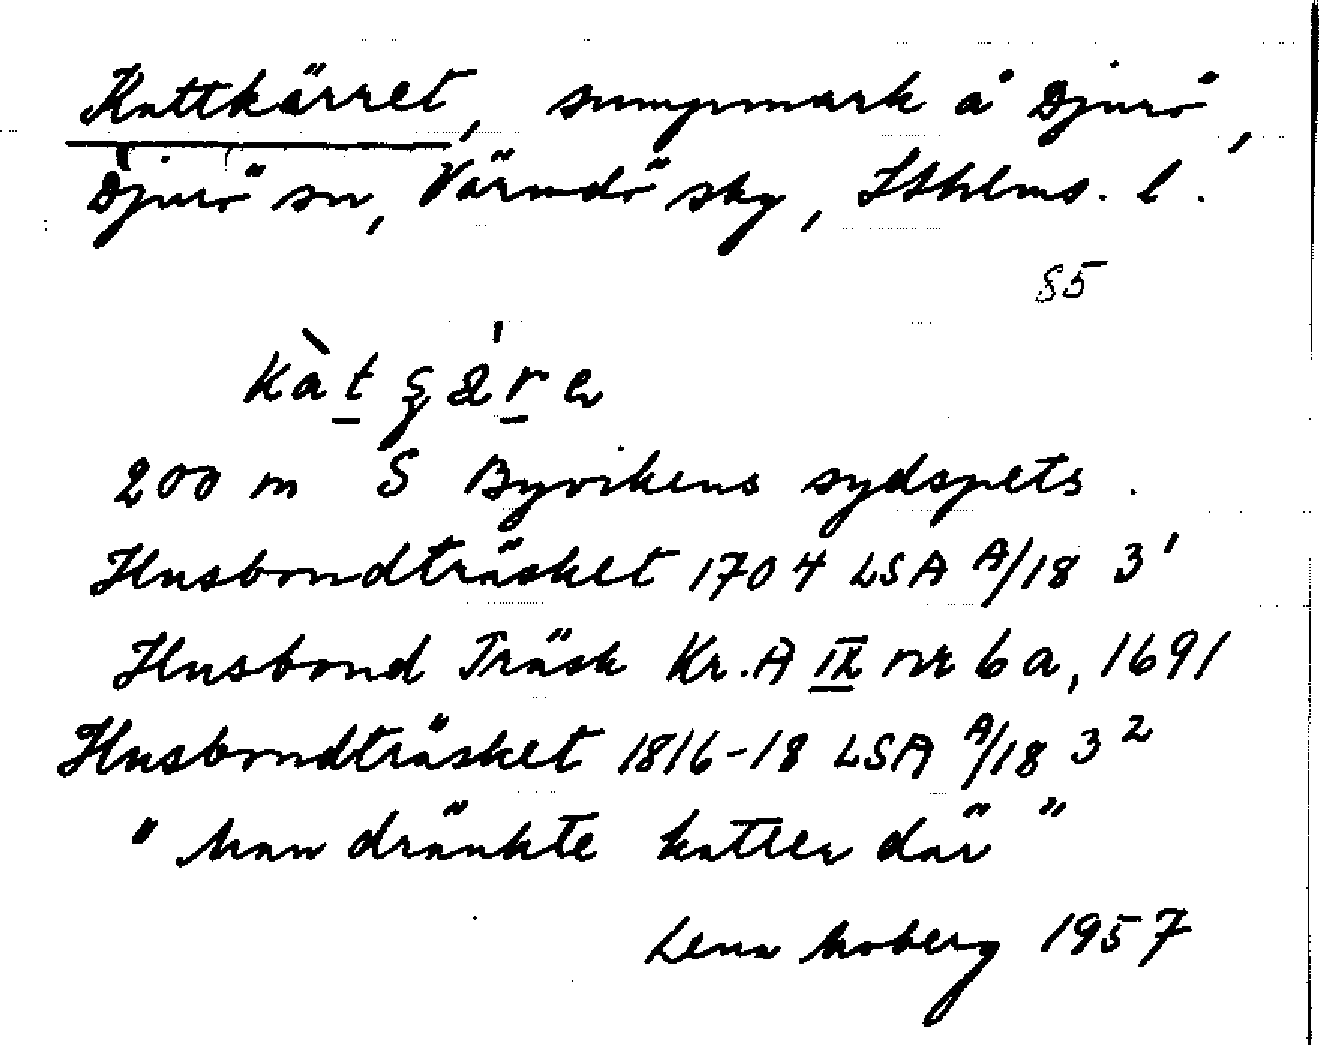 Kattkärret, sumpmark å Djurö,
Djurö sn, Värmdö skg, Sthlms. l.
§5
200 m S Byvikens sydspets.
Husbondträsket 1704 LSA A/18 3¹
Husbond Träsk Kr.A IX nr 6a, 1691
Husbondträsket 1816-18 LSA A/18 3²
"Man dränkte katter där"
Lena Moberg 1957